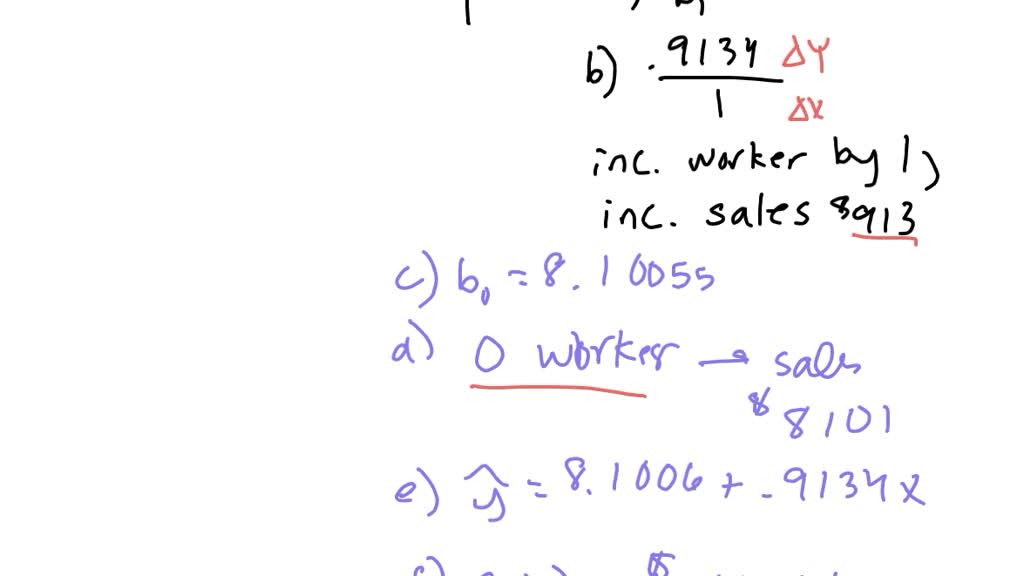 b) .9134 ΔY
1 ΔX
inc. worker by 1,
inc. sales $913
c) b₀ = 8.10055
d) 0 worker → sales
$8101
e) ŷ = 8.1006 + .9134x
$